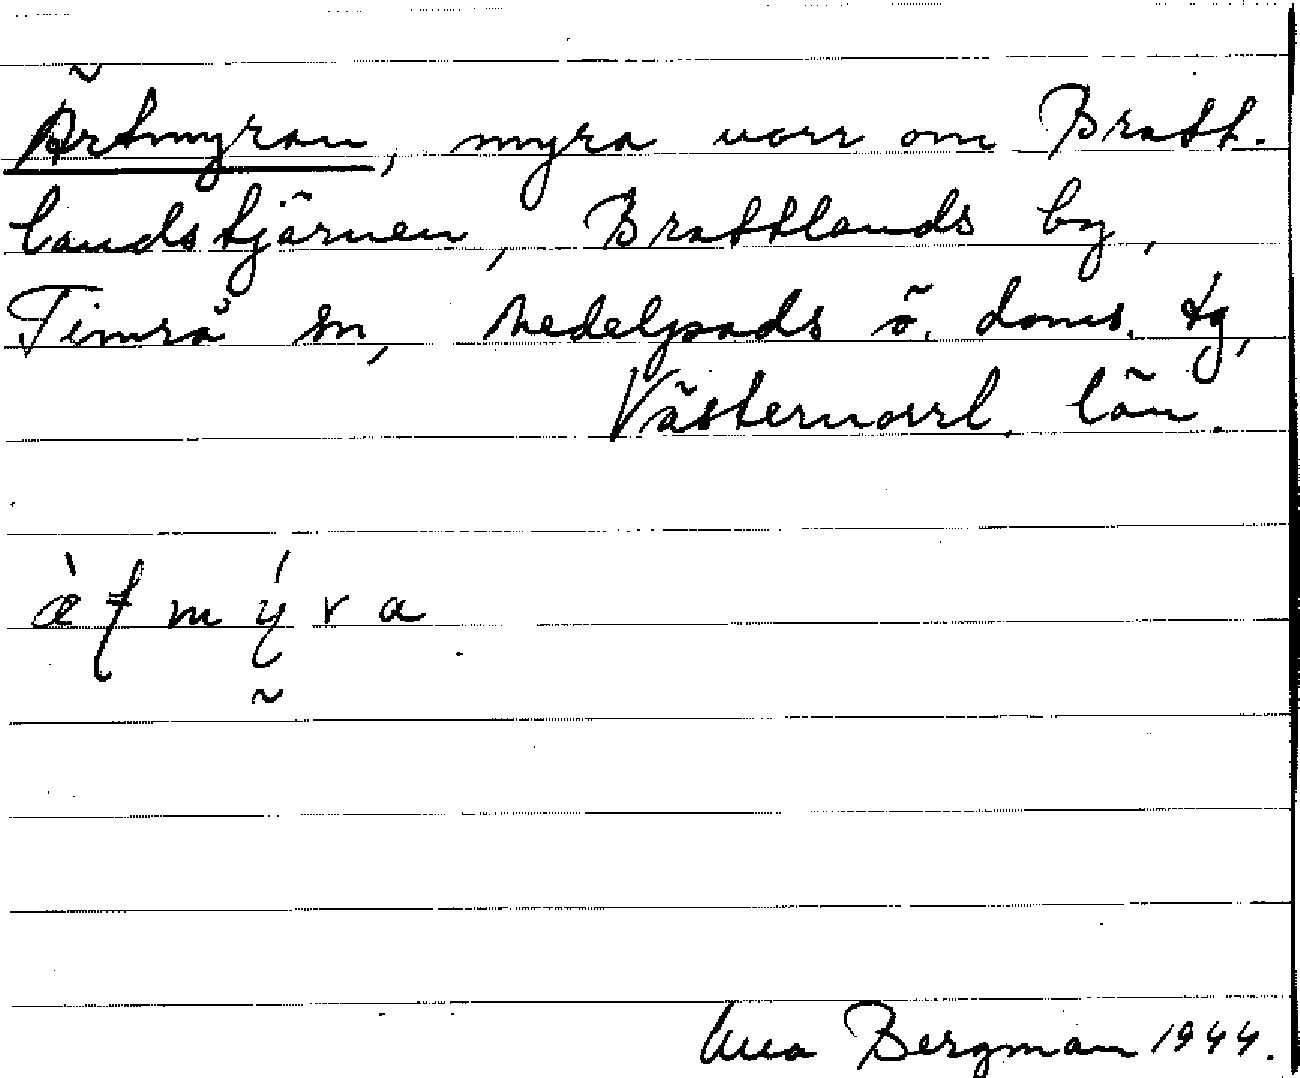 Ärtmyran, myra norr om Bratt-
landstjärnen, Brattlands by,
Timrå sn, Medelpads ö. doms. tg,
Västernorrl. län.
æ̀ t m ý r a
Bergman 1944.